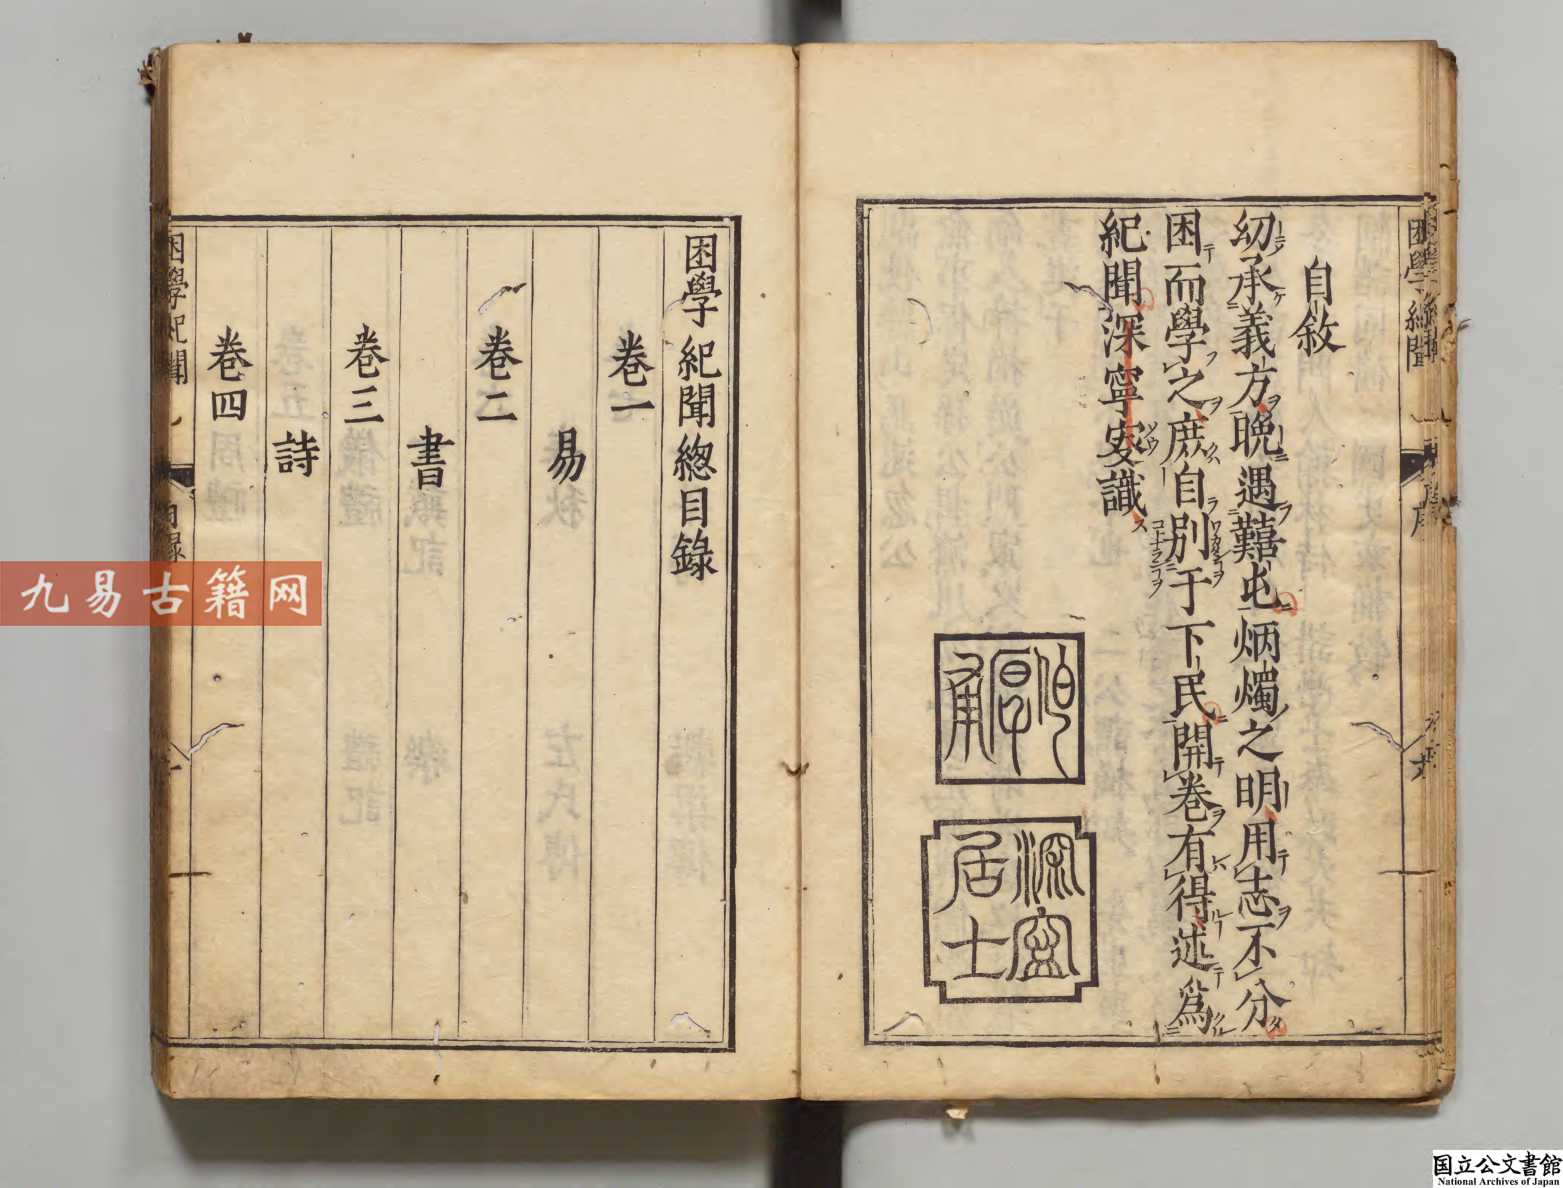 自敘
幼承義方晩遇囏屯炳燭之明用志不分
困而學之庶自別于下民開卷有得述爲
紀聞深寧叟識
伯厚甫
深寧居士
困學紀聞
序
困學紀聞總目錄
卷一
易
卷二
書
卷三
詩
卷四
困學紀聞
目錄
九易古籍网
国立公文書館
National Archives of Japan